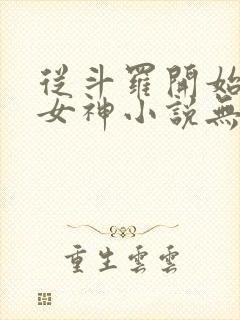 從斗羅開始
女神小說無
重生雲雲